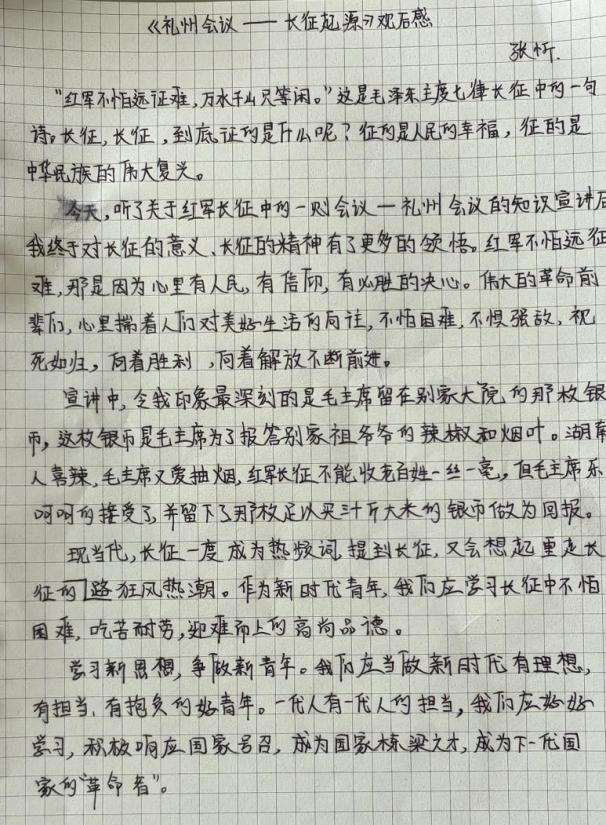 《礼州会议——长征起源》观后感
张忻.
“红军不怕远征难,万水千山只等闲。”这是毛泽东主度七律长征中的一句
诗。长征,长征,到底证的是什么呢?征的是人民的幸福,征的是
中华民族的伟大复兴。
今天,听了关于红军长征中的一则会议一礼州会议的知识宣讲后
我终于对长征的意义、长征的精神有了更多的领悟。红军不怕远征
难,那是因为心里有人民,有信仰,有必胜的决心。伟大的革命前
辈们,心里揣着人们对美好生活的向往,不怕困难,不惧强敌,视
死如归,向着胜利,向着解放不断前进。
宣讲中,令我印象最深刻的是毛主席留在别家大院的那枚银
币,这枚银币是毛主席为了报答别家祖爷爷的辣椒和烟叶。湖南
人喜辣,毛主席又爱抽烟,红军长征不能收老百姓一丝一毫,但毛主席乐
呵呵的接受了,并留下了那枚足以买三十斤大米的银币做为回报。
现当代,长征一度成为热频词,提到长征,又会想起重走长
征的路狂风热潮。作为新时代青年,我们应学习长征中不怕
困难,吃苦耐劳,迎难而上的高尚品德。
学习新思想,争做新青年。我们应当做新时代有理想,
有担当、有抱负的好青年。一代人有一代人的担当,我们应好好
学习,积极响应国家号召,成为国家栋梁之才,成为下一代国
家的“革命者”。